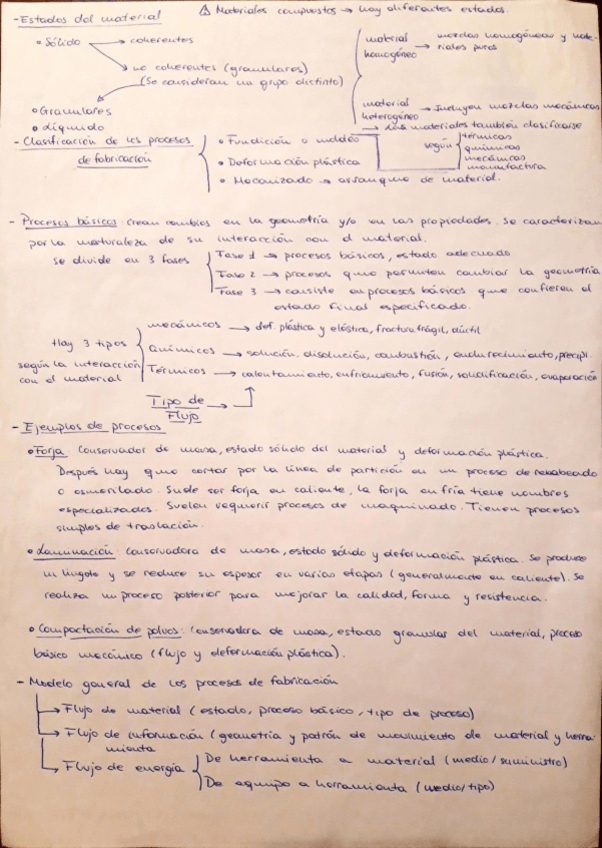 - Estados del material
⚠ Materiales compuestos → hay diferentes estados.
• Sólido → coherentes
→ no coherentes (granulares)
(Se consideran un grupo distinto)
• Granulares
• Líquido
material homogéneo → mezclas homogéneas y materiales puros
material heterogéneo → Incluyen mezclas mecánicas
→ Los materiales también clasificarse según
térmicas
químicas
mecánicas
manufactura
- Clasificación de los procesos
de fabricación
• Fundición o moldeo
• Deformación plástica
• Mecanizado → arranque de material.
- Procesos básicos: crean cambios en la geometría y/o en las propiedades. Se caracterizan
por la naturaleza de su interacción con el material.
Se divide en 3 fases
Fase 1 → procesos básicos, estado adecuado
Fase 2 → procesos que permiten cambiar la geometría
Fase 3 → consiste en procesos básicos que confieren el
estado final especificado.
Hay 3 tipos
según la interacción
con el material
mecánicos → def. plástica y elástica, fractura frágil, dúctil
Químicos → solución, disolución, combustión, endurecimiento, precipi.
Térmicos → calentamiento, enfriamiento, fusión, solidificación, evaporación
Tipo de
Flujo
- Ejemplos de procesos
• Forja: Conservador de masa, estado sólido del material y deformación plástica.
Después hay que cortar por la línea de partición en un proceso de rebabeado
o esmerilado. Suele ser forja en caliente, la forja en fría tiene nombres
especializados. Suelen requerir procesos de maquinado. Tienen procesos
simples de traslación.
• Laminación: Conservadora de masa, estado sólido y deformación plástica. Se produce
un lingote y se reduce su espesor en varias etapas (generalmente en caliente). Se
realiza un proceso posterior para mejorar la calidad, forma y resistencia.
• Compactación de polvos: Conservadora de masa, estado granular del material, proceso
básico mecánico (flujo y deformación plástica).
- Modelo general de los procesos de fabricación
→ Flujo de material (estado, proceso básico, tipo de proceso)
→ Flujo de información (geometría y patrón de movimiento de material y herra-
mienta
→ Flujo de energía
De herramienta a material (medio/suministro)
De equipo a herramienta (medio/tipo)